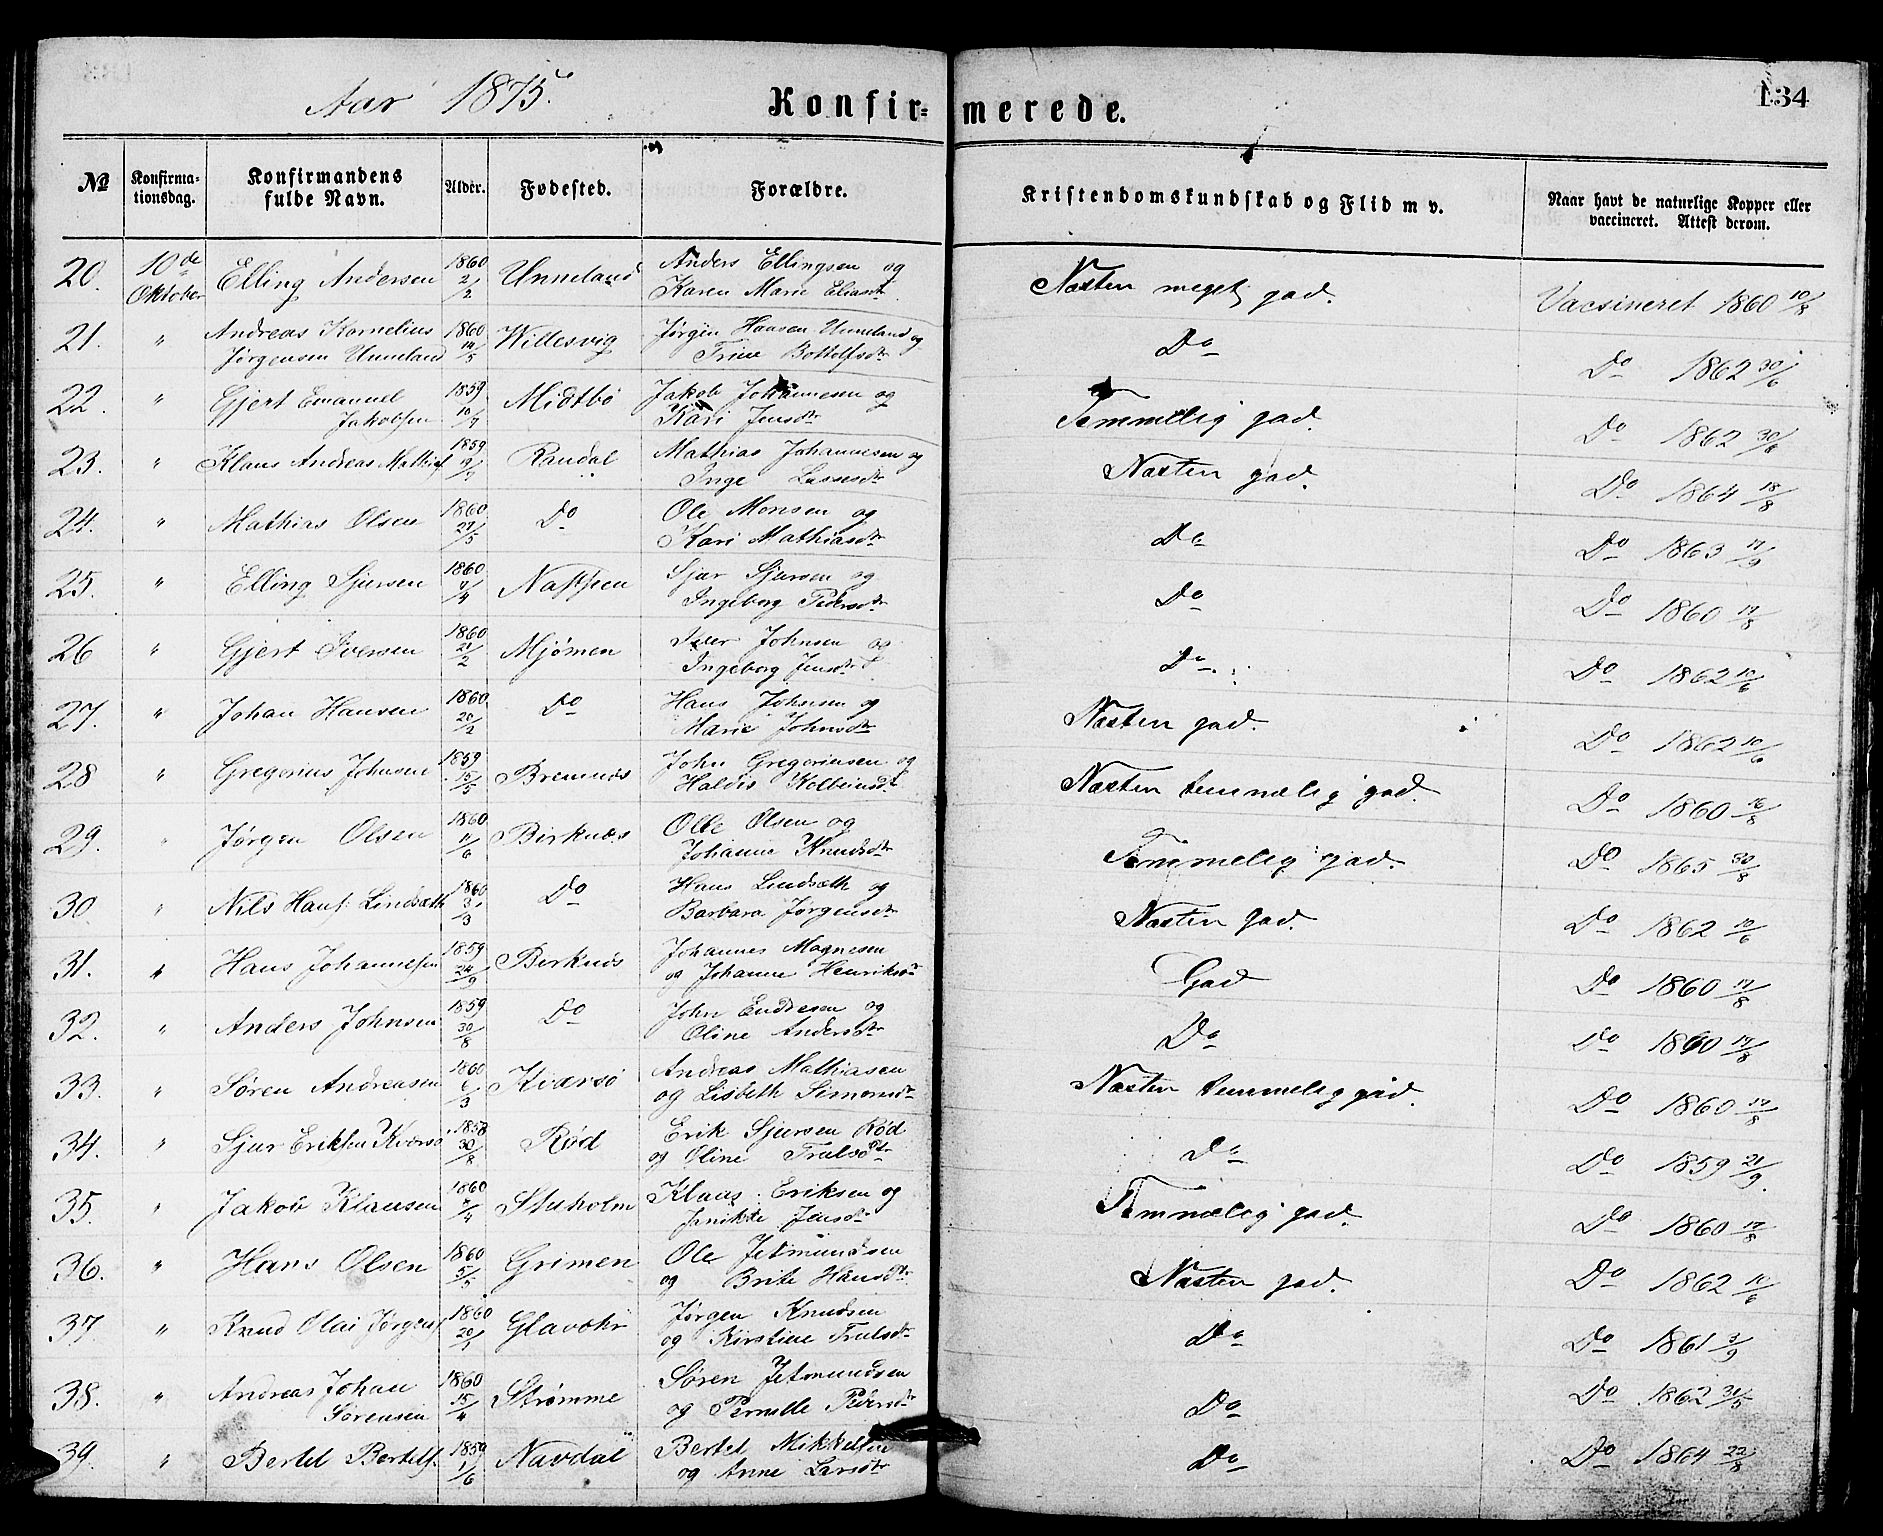 Aar 1875.
Konfir= merede.
134
No
Konfirma-
tionsdag.
Konfirmandens
fulde Navn.
Alder.
Fødested.
Forældre.
Kristendomskundskab og Flid m v.
Naar havt de naturlige Kopper eller
vaccineret. Attest derom.
20. 10de Oktober Elling Andersen 1860 2/2 Unneland Anders Ellingsen og Karen Marie Eliasdtr Næsten meget god. Vacsineret 1860 10/8
21. " Andreas Kornelius Jørgensen Unneland 1860 14/5 Willesvig Jørgen Hansen Unneland og Trine Bottolfsdtr Do Do 1862 30/6
22. " Gjert Emanuel Jakobsen 1859 10/7 Midtbø Jakob Johannesen og Kari Jensdtr Temmelig god. Do 1862 30/6
23. " Klaus Andreas Mathias. 1859 9/9 Randal Mathias Johannesen og Inge Lassesdtr Næsten god. Do 1864 18/8
24. " Mathias Olsen 1860 27/5 Do Ole Monsen og Kari Mathiasdtr Do Do 1863 17/9
25. " Elling Sjursen 1860 7/4 Nappen Sjur Sjursen og Ingeborg Pedersdtr Do Do 1860 17/8
26 " Gjert Iversen 1860 21/2 Mjømen Iver Johnsen og Ingeborg Jensdtr Do Do 1862 10/6
27. " Johan Hansen 1860 20/2 Do Hans Johnsen og Marie Johnsdtr Næsten god. Do 1862 10/6
28 " Gregorius Johnsen 1859 15/5 Bremnæs John Gregoriusen og Haldis Kolbeinsdtr Næsten temmelig god. Do 1860 16/8
29. " Jørgen Olsen 1860 11/6 Birknæs Olle Olsen og Johanne Knudsdtr Temmelig god. Do 1865 30/8
30. " Nils Hans. Lindsæth 1860 /3 Do Hans Lindsæth og Barbara Jørgensdtr Næsten god. Do 1862 10/6
31. " Hans Johannesen 1859 24/9 Berknæs Johannes Magnesen og Johanne Henriksdtr God Do 1860 17/8
32. " Anders Johnsen 1859 30/8 Do John Endresen og Oline Andersdtr Do Do 1860 17/8
33. " Søren Andreasen 1860 6/3 Kværsø Andreas Mathiasen og Lisbeth Simonsdtr Næsten temmelig god. Do 1860 17/8
34. " Sjur Eriksen Kværsø 1858 30/8 Rød Erik Sjursen Rød og Oline Trulsdtr Do Do 1859 21/9.
35. " Jakob Klausen 1860 /4 Stuholm Klaus Eriksen og Jensdtr Temmelig god. Do 1860 17/8
36. " Hans Olsen 1860 5/5 Grimen Ole Jetmundsen og Brite Hansdtr Næsten god. Do 1862 10/6
37. " Knud Olai Jørgens. 1860 20/1 Glavohr Jørgen Knudsen og Kirstine Trulsdtr Do Do 1861 3/9
38. " Andreas Johan Sørensen 1860 15/4 Strømme Søren Jetmundsen og Pernille Pedersdtr Do Do 1862 31/5
39. " Bertel Bertels. 1859 1/6 Navdal Bertel Mikkelsen og Anne Larsdtr Do Do 1864 22/8